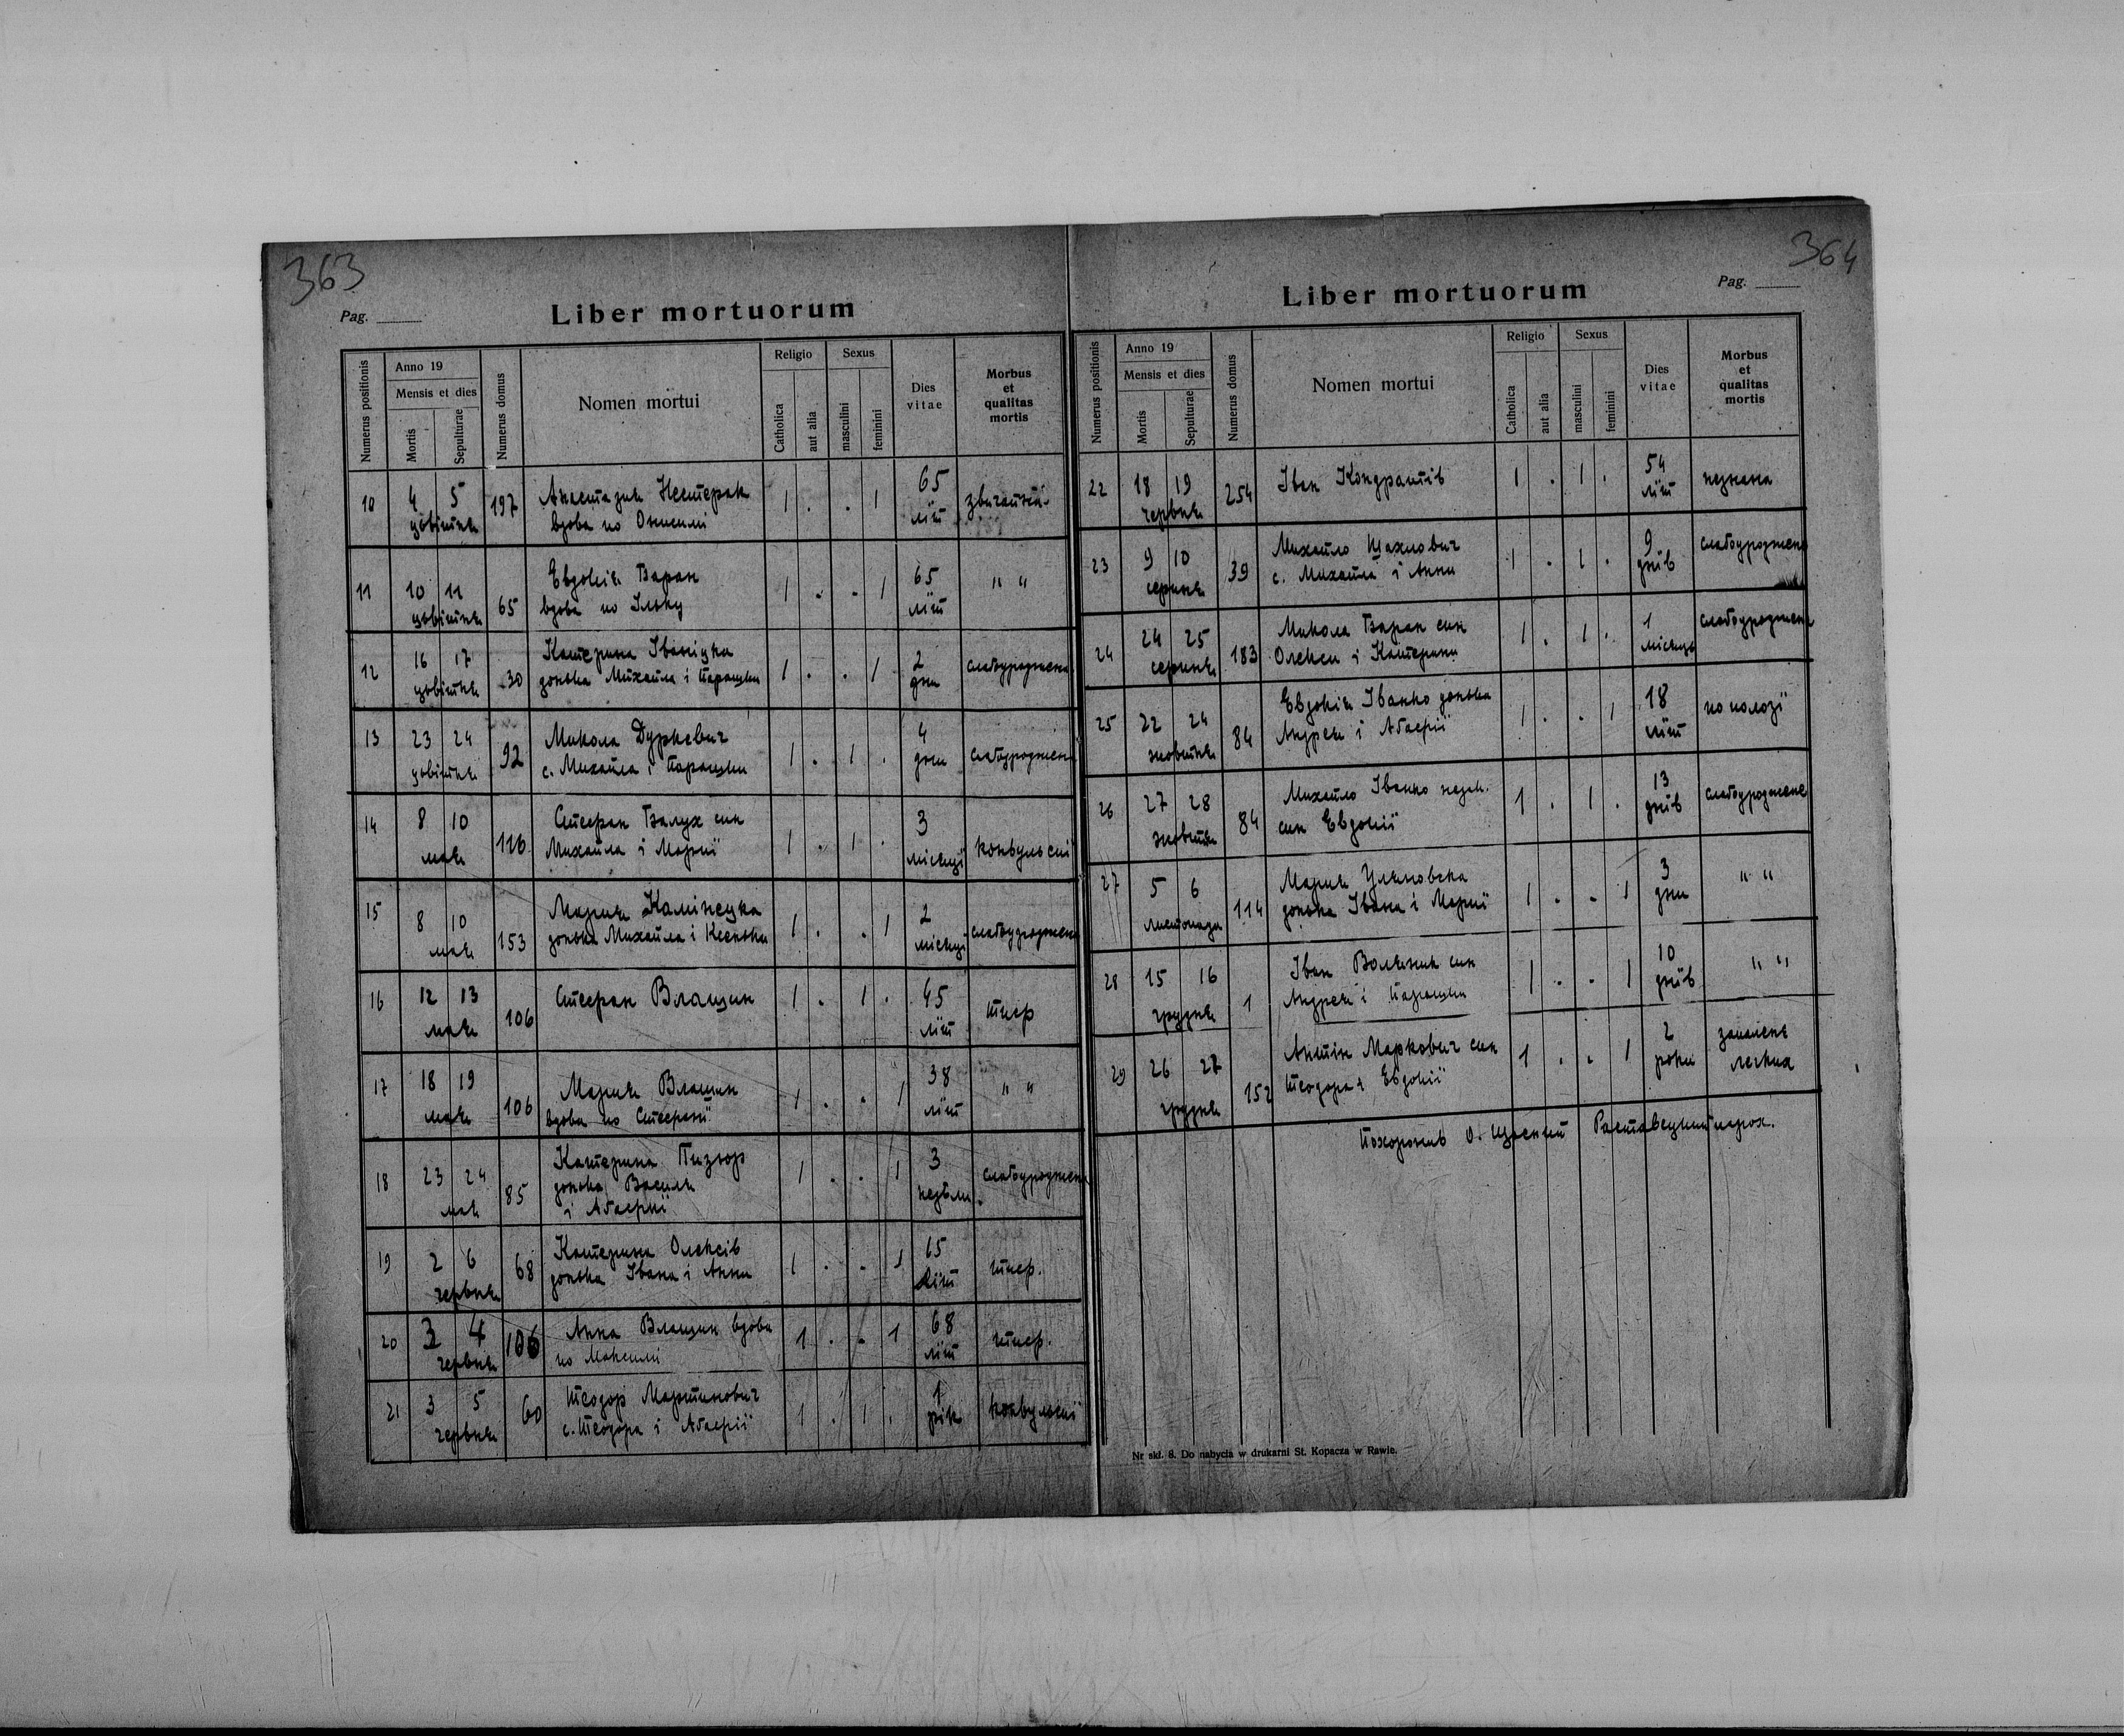 363
Pag.
Liber mortuorum
Numerus positionis
Anno 19
Mensis et dies
Mortis
Sepulturae
Numerus domus
Nomen mortui
Religio
Catholica
aut alia
Sexus
masculini
feminini
Dies vitae
Morbus et qualitas mortis
10 4 5 цвітня 197 Анастазия Нестерак 1 . . 1 65 літ звичайна
вдова по Онисимі
11 10 11 цвітня 65 Евдокія Баран 1 . . 1 65 літ " "
вдова по Ільку
12 16 17 цвітня 30 Катерина Іваніцка 1 . . 1 2 дни слабоуроджена
донька Михайла і Парашки
13 23 24 цвітня 92 Микола Дуркевич 1 . 1 . 4 дни слабоуроджене
с. Михайла і Парашки
14 8 10 мая 116 Стефан Балух син 1 . 1 . 3 місяці конвульсиї
Михайла і Мариї
15 8 10 мая 153 Мария Камінецка 1 . . 1 2 місяці слабоуроджена
донька Михайла і Ксеньки
16 12 13 мая 106 Стефан Влащин 1 . 1 . 45 літ тиф
17 18 19 мая 106 Мария Влащин 1 . . 1 38 літ " "
вдова по Стефані
18 23 24 мая 85 Катерина Пизюр 1 . . 1 3 неділи слабоуроджена
донька Василя
і Агафиї
19 2 6 червня 68 Катерина Олексів 1 . . 1 15 літ тиф.
донька Івана і Анни
20 3 4 червня 106 Анна Влащин вдова 1 . . 1 68 літ тиф.
по Максимі
21 3 5 червня 60 Теодор Мартинович 1 . 1 . 1 рік конвульсиї
с. Теодора і Агафиї
364
Pag.
Liber mortuorum
Numerus positionis
Anno 19
Mensis et dies
Mortis
Sepulturae
Numerus domus
Nomen mortui
Religio
Catholica
aut alia
Sexus
masculini
feminini
Dies vitae
Morbus et qualitas mortis
22 18 19 червня 254 Іван Кондратів 1 . 1 . 54 літ незнана
23 9 10 серпня 39 Михайло Щахнович 1 . 1 . 9 днів слабоуроджене
с. Михайла і Анни
24 24 25 серпня 183 Микола Баран син 1 . 1 . 1 місяць слабоуроджене
Олекси і Катерини
25 22 24 жовтня 84 Евдокія Іванко донька 1 . . 1 18 літ по полозі
Андрея і Агафиї
26 27 28 жовтня 84 Михайло Іванко незак. 1 . 1 . 13 днів слабоуроджене
син Евдокії
27 5 6 листопада 114 Мария Уляновска 1 . . 1 3 дни " "
донька Івана і Мариї
28 15 16 грудня 1 Іван Воляник син 1 . . 1 10 днів " "
Андрея і Парашки
29 26 27 грудня 152 Антін Маркович син 1 . . 1 2 роки запалене легких
Теодора і Евдокії
Похоронив о. Раставецкий парох.
Nr skł. 8. Do nabycia w drukarni St. Kopacza w Rawie.